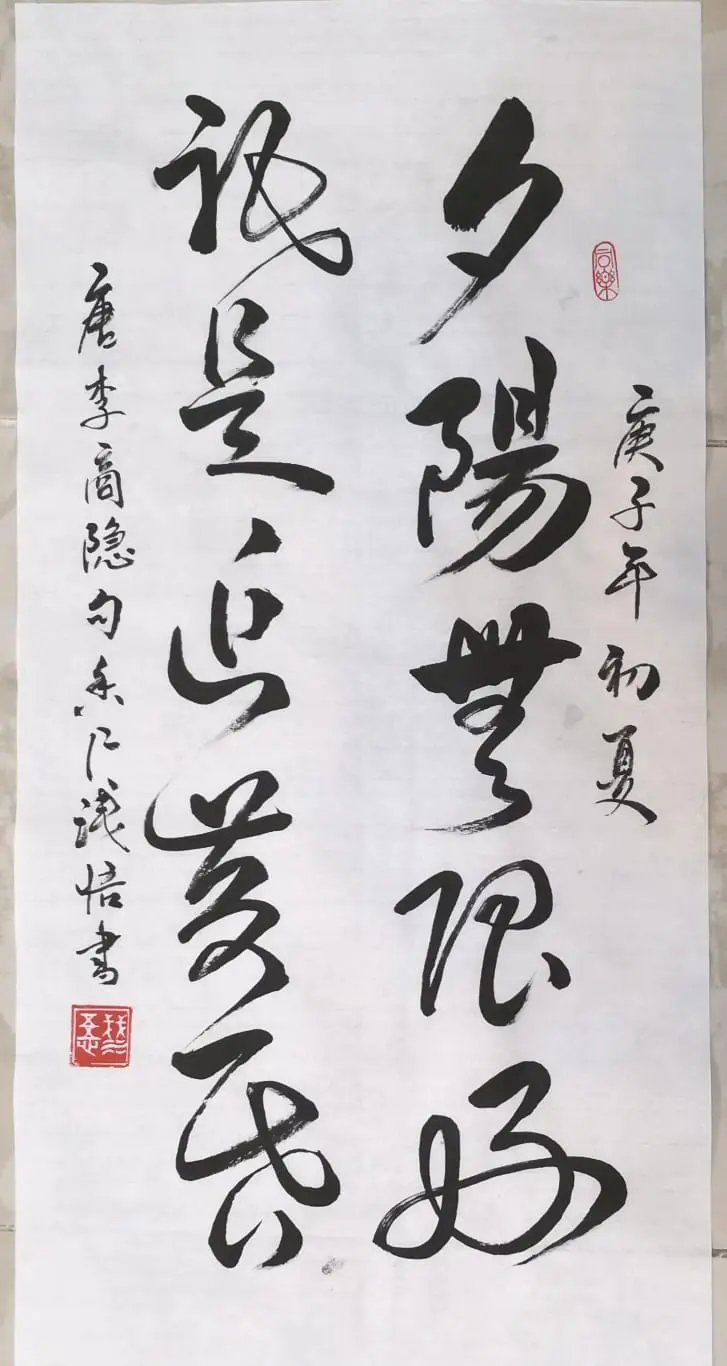 庚子年初夏
夕陽無限好
祇是近黄昏
唐李商隐句 悟書